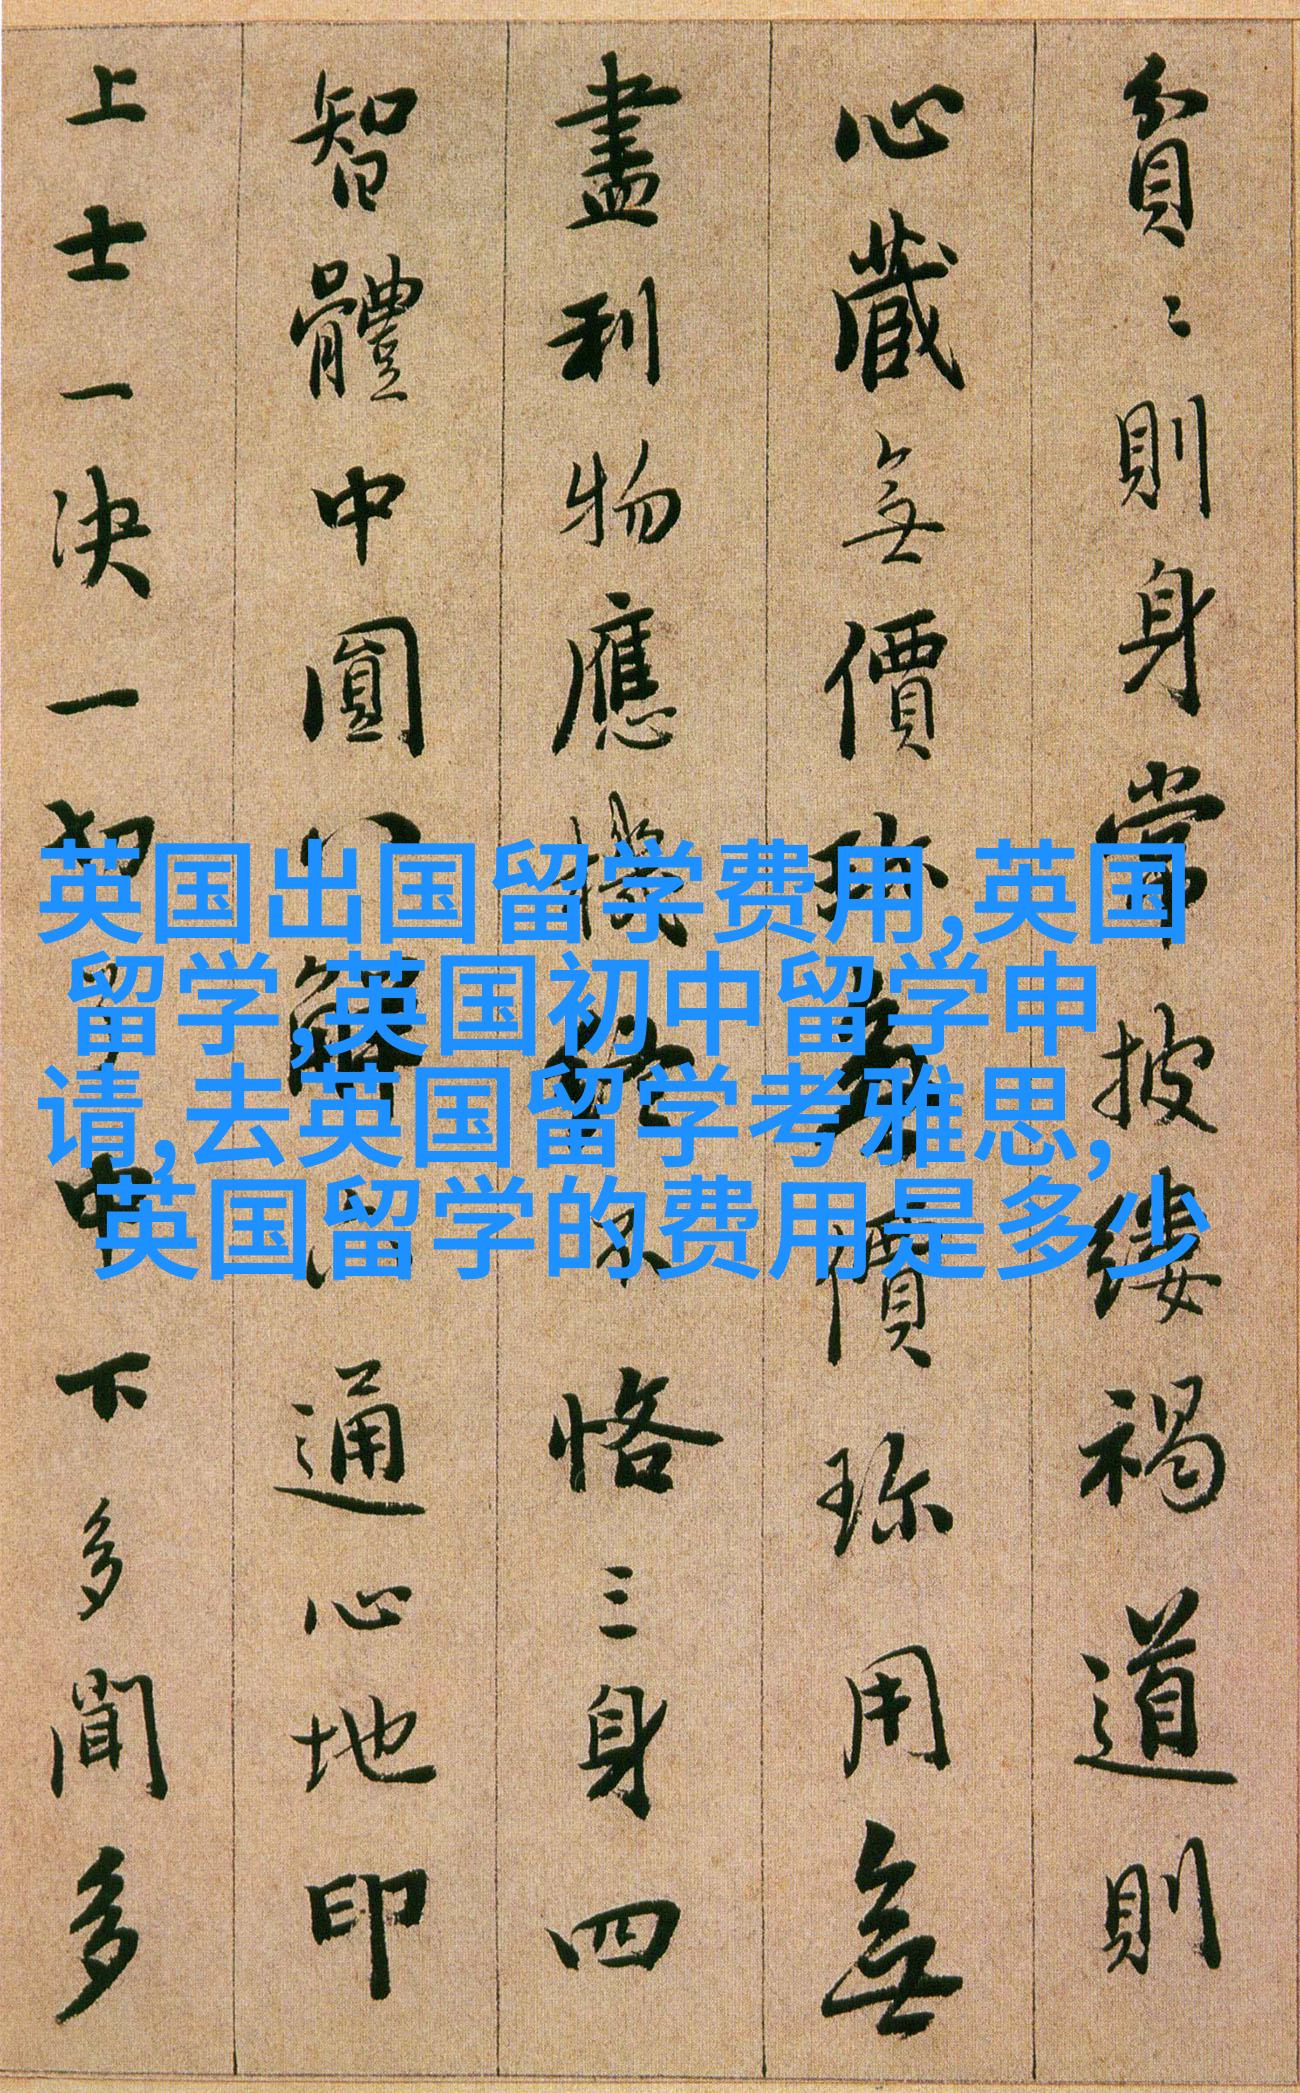 貧〻則身常披縷褐道則
心藏無價珎無價珎用無
盡利物應機終不恪三身四
智體中圓八解六通心地印
上士一決一切了中下多聞多
英国出国留学费用,英国
留学,英国初中留学申
请,去英国留学考雅思,
英国留学的费用是多少